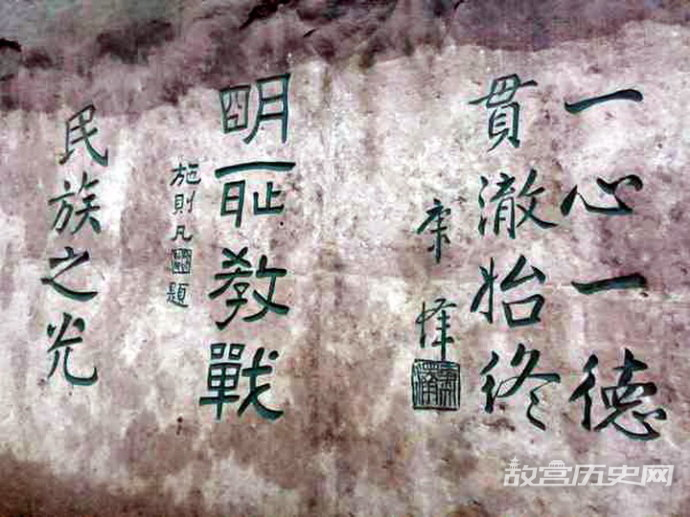 一心一德
貫澈始終
明恥教戰
施則凡題
民族之光
故宫历史网